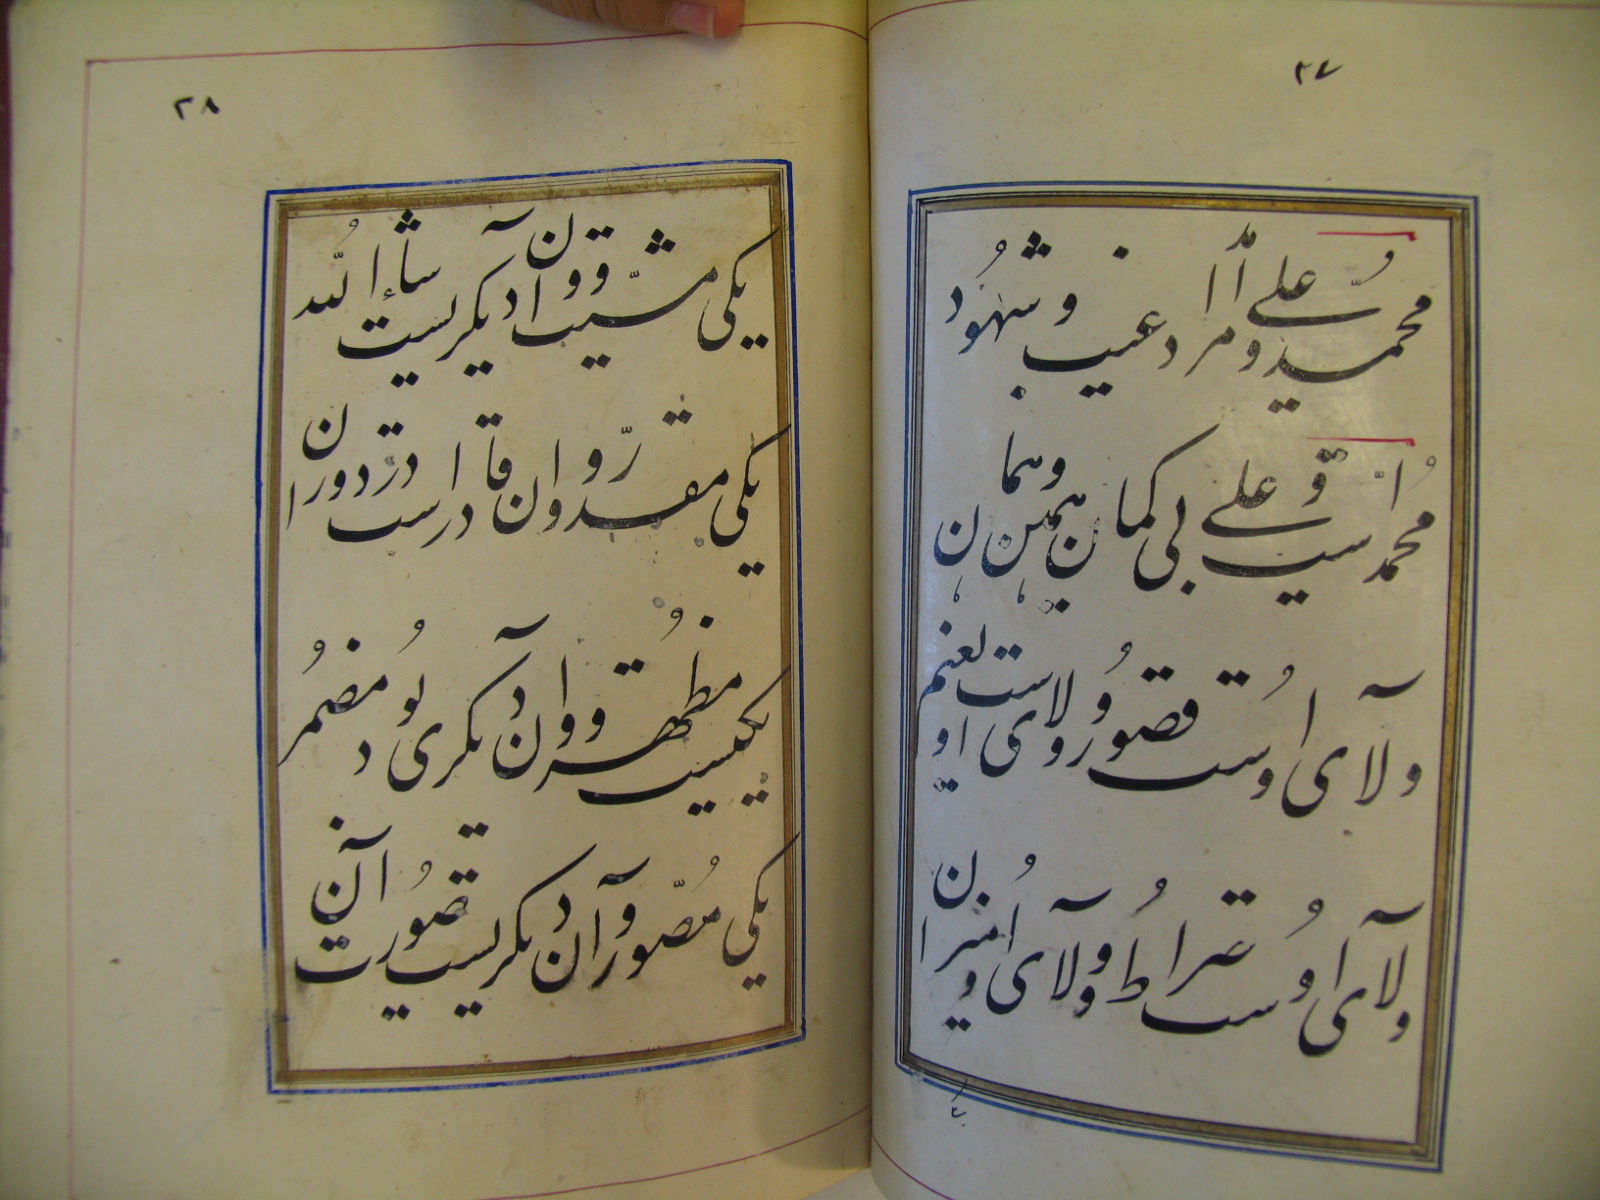 ۲۷
محمد و علی مراد غیب و شهود
محمد است و علی بی گمان همین و همان
ولای اوست قصور و ولای اوست نعیم
ولای اوست صراط و ولای او میزان
۲۸
یکی مشیّت و آن دیگریست شاءالله
یکی مقدّر و آن قادر است در دوران
یکیست مظهر و آن دیگری بود مضمر
یکی مصوّر و آن دیگریست صورت آن